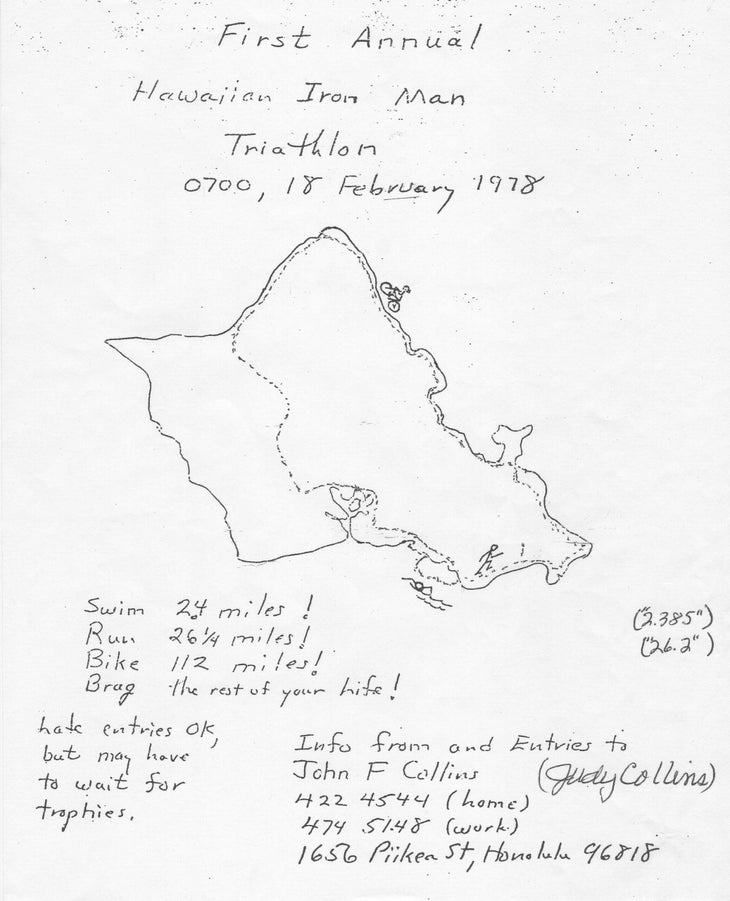 First Annual
Hawaiian Iron Man
Triathlon
0700, 18 February 1978
Swim 2.4 miles !
Run 26 1/4 miles!
Bike 112 miles!
Brag the rest of your life!
("2.385")
("26.2")
Late entries OK,
but may have
to wait for
trophies.
Info from and Entries to
John F Collins (Judy Collins)
422 4544 (home)
474 5148 (work)
1656 Piikea St, Honolulu 96818